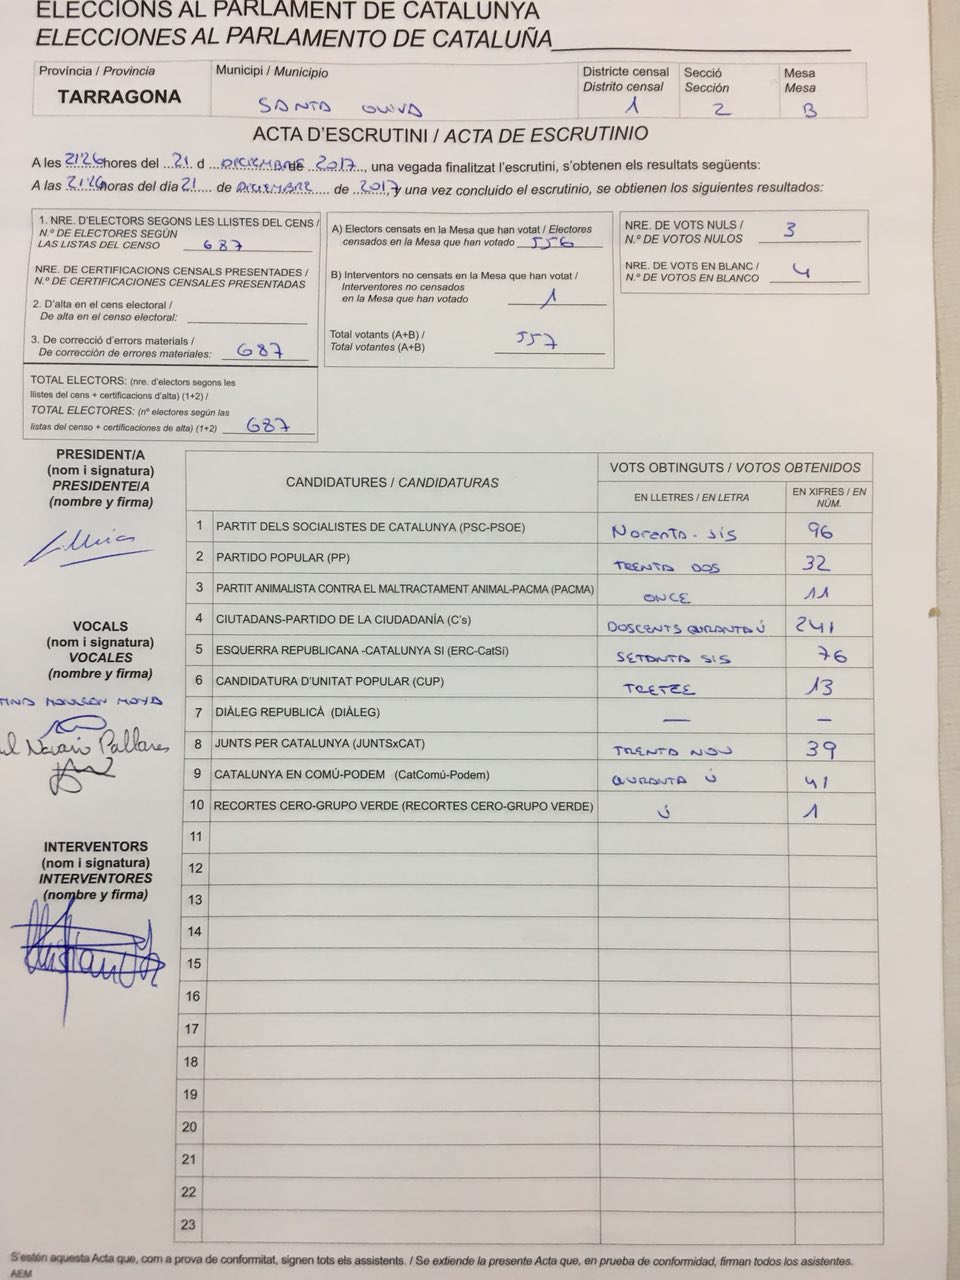 ELECCIONS AL PARLAMENT DE CATALUNYA
ELECCIONES AL PARLAMENTO DE CATALUÑA
Província / Provincia
TARRAGONA
Municipi / Municipio
SANTA OLIVA
Districte censal
Distrito censal
1
Secció
Sección
2
Mesa
Mesa
B
ACTA D'ESCRUTINI / ACTA DE ESCRUTINIO
A les 21'26 hores del 21 d DICIEMBRE de 2017, una vegada finalitzat l'escrutini, s'obtenen els resultats següents:
A las 21'26 horas del día 21 de DICIEMBRE de 2017 y una vez concluido el escrutinio, se obtienen los siguientes resultados:
1. NRE. D'ELECTORS SEGONS LES LLISTES DEL CENS /
N.º DE ELECTORES SEGÚN
LAS LISTAS DEL CENSO 687
NRE. DE CERTIFICACIONS CENSALS PRESENTADES /
N.º DE CERTIFICACIONES CENSALES PRESENTADAS
2. D'alta en el cens electoral /
De alta en el censo electoral:
3. De correcció d'errors materials /
De corrección de errores materiales: 687
TOTAL ELECTORS: (nre. d'electors segons les
llistes del cens + certificacions d'alta) (1+2) /
TOTAL ELECTORES: (nº electores según las
listas del censo + certificaciones de alta) (1+2) 687
A) Electors censats en la Mesa que han votat / Electores
censados en la Mesa que han votado 556
B) Interventors no censats en la Mesa que han votat /
Interventores no censados
en la Mesa que han votado 1
Total votants (A+B) /
Total votantes (A+B) 557
NRE. DE VOTS NULS /
N.º DE VOTOS NULOS 3
NRE. DE VOTS EN BLANC /
N.º DE VOTOS EN BLANCO 4
PRESIDENT/A
(nom i signatura)
PRESIDENTE/A
(nombre y firma)
VOCALS
(nom i signatura)
VOCALES
(nombre y firma)
Pallares
INTERVENTORS
(nom i signatura)
INTERVENTORES
(nombre y firma)
CANDIDATURES / CANDIDATURAS
VOTS OBTINGUTS / VOTOS OBTENIDOS
EN LLETRES / EN LETRA
EN XIFRES / EN NÚM.
1 PARTIT DELS SOCIALISTES DE CATALUNYA (PSC-PSOE) Noranta-sis 96
2 PARTIDO POPULAR (PP) TRENTA DOS 32
3 PARTIT ANIMALISTA CONTRA EL MALTRACTAMENT ANIMAL-PACMA (PACMA) ONCE 11
4 CIUTADANS-PARTIDO DE LA CIUDADANÍA (C's) DOSCENTS QURANTA Ú 241
5 ESQUERRA REPUBLICANA -CATALUNYA SI (ERC-CatSí) SETANTA SIS 76
6 CANDIDATURA D'UNITAT POPULAR (CUP) TRETZE 13
7 DIÀLEG REPUBLICÀ (DIÀLEG) — —
8 JUNTS PER CATALUNYA (JUNTSxCAT) TRENTA NOU 39
9 CATALUNYA EN COMÚ-PODEM (CatComú-Podem) QURANTA Ú 41
10 RECORTES CERO-GRUPO VERDE (RECORTES CERO-GRUPO VERDE) Ú 1
11
12
13
14
15
16
17
18
19
20
21
22
23
S'estén aquesta Acta que, com a prova de conformitat, signen tots els assistents. / Se extiende la presente Acta que, en prueba de conformidad, firman todos los asistentes.
AEM